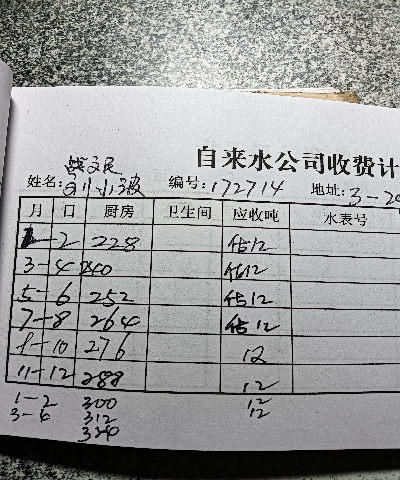 自来水公司收费计
文民
姓名: 刘小波 编号: 172714 地址: 3-20
月 日 厨房 卫生间 应收吨 水表号
1-2 228 估12
3-4 240 估12
5-6 252 估12
7-8 264 估12
9-10 276 12
11-12 288 12
1-2 300 12
3-6 312 12
324